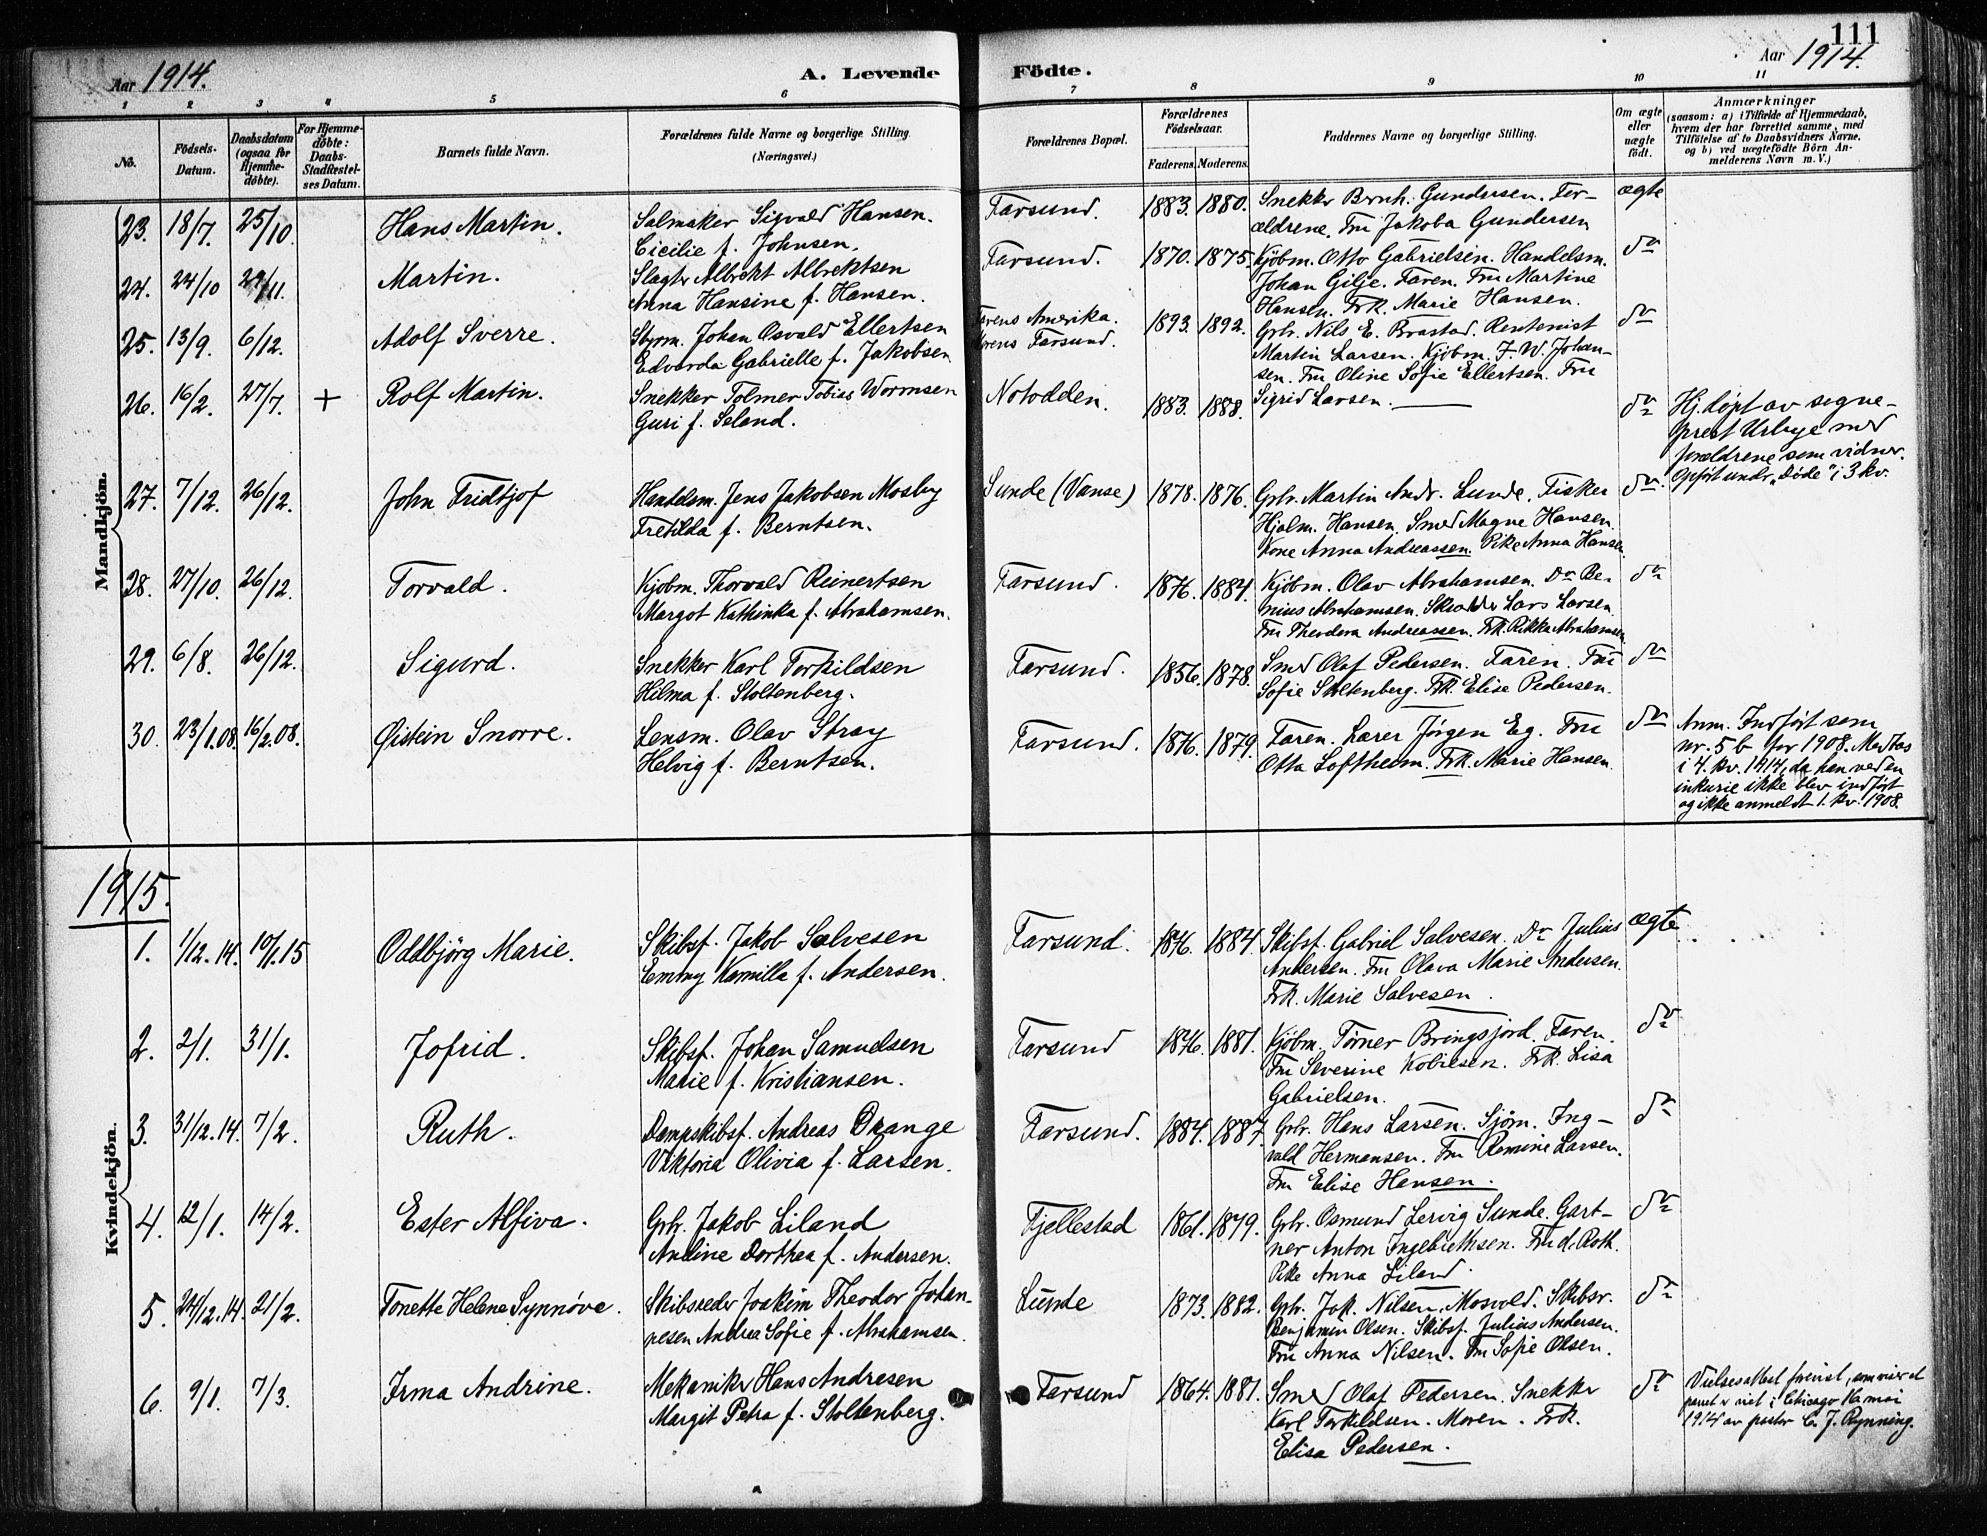 111
Aar 1914.
A. Levende
Födte.
Aar 1914.
1 2 3 4 5 6 7 8 9 10 11
No.
Födsels-
Datum.
Daabsdatum
(ogsaa for
Hjemme-
döbte).
For Hjemme-
döbte:
Daabs-
Stadfæstel-
ses Datum.
Barnets fulde Navn.
Forældrenes fulde Navne og borgerlige Stilling
(Næringsvei.)
Forældrenes Bopæl.
Forældrenes
Födselsaar.
Faderens. Moderens.
Faddernes Navne og borgerlige Stilling.
Om ægte
eller
uægte
født.
Anmærkninger
(saasom: a) i Tilfælde af Hjemmedaab,
hvem der har forrettet samme, med
Tilföielse af to Daabsvidners Navne.
og b) ved uægtefödte Börn An-
melderens Navn m. V.)
Mandkjön.
23. 18/7 25/10 Hans Martin. Salmaker Sigvald Hansen.
Cicilie f. Johnsen.
Farsund. 1883. 1880. Snekker Brnh. Gundersen. For-
ældrene. Fru Jakoba Gundersen
ægte
24. 24/10 29/11. Martin. Slagter Albrekt Albrektsen
Anna Hansine f. Hansen.
Farsund. 1870. 1875. Kjöbm. Otto Gabrielsen. Handelsm.
Johan Gilje. Faren. Fru Martine
Hansen. Frk. Marie Hansen.
do
25. 13/9. 6/12. Adolf Sverre. Styrm. Johan Osvald Ellertsen
Edvarda Gabrielle f. Jakobsen
Farens Amerika.
Morens Farsund.
1893. 1892. Grbr. Nils E. Brastad. Rentenist
Martin Larsen. Kjöbm. F. W. Johan-
sen. Fru Oline Sofie Ellertsen. Fru
Sigrid Larsen.
do
26. 16/2. 27/7. + Rolf Martin. Snekker Tolmer Tobias Wormsen
Guri f. Seland.
Notodden. 1883. 1888.
do
Hj.döpt av sogne-
prest Urbye med
forældrene som vidner.
Opført under „Døde" i 3 kv.
27. 7/12. 26/12. John Fridtjof Handelsm. Jens Jakobsen Mosby
Fretilda f. Berntsen.
Sunde (Vanse) 1878. 1876. Grbr. Martin Andr. Lunde. Fisker
Hjalm. Hansen. Smed Magne Hansen.
Kone Anna Andreassen. Pike Anna Hansen.
do.
28. 27/10. 26/12. Torvald. Kjöbm. Thorvald Reinertsen
Margot Kathinka f. Abrahamsen.
Farsund. 1876. 1884. Kjöbm. Olav Abrahamsen. Do Be-
nius Abrahamsen. Lars Larsen
Fru Theodora Andreassen. Frk. Rikka Abrahamsen
do
29. 6/8. 26/12. Sigurd. Snekker Karl Torkildsen
Hilma f. Stoltenberg.
Farsund. 1856. 1878. Smed Olaf Pedersen. Faren. Fru
Sofie Stoltenberg. Frk. Elise Pedersen.
do
30. 23/1.08. 16/2.08. Øistein Snorre. Lensm. Olav Stray
Helvig f. Berntsen.
Farsund. 1876. 1879. Faren. Lærer Jørgen Eg. Fru
Otta Loftheim. Frk. Marie Hansen.
do
Anm. Indført som
nr. 5 b for 1908. Medtas
i 4. kv. 1914, da han ved en
inkurie ikke blev indført
og ikke anmeldt 1. kv. 1908.
1915.
Kvindekjön.
1. 1/12.14. 10/1.15 Oddbjörg Marie. Skibsf. Jakob Salvesen
Emmy Kamilla f. Andersen.
Farsund. 1876. 1884. Skibsf. Gabriel Salvesen. Do Julius
Andersen. Fru Olava Marie Andersen.
Frk. Marie Salvesen.
ægte
2. 2/1. 31/1. Jofrid. Skibsf. Johan Samuelsen
Marie f. Kristiansen.
Farsund 1876. 1881. Kjöbm. Törner Bringsjord. Faren.
Fru Severine Frk. Lisa
Gabrielsen.
do
3. 31/12.14. 7/2. Ruth. Dampskibsf. Andreas Orange
Viktoria Olivia f. Larsen.
Farsund. 1884. 1887. Grbr. Hans Larsen. Sjöm. Ing-
vald Hermansen. Fru Larsen.
Fru Elise Hansen.
do
4. 12/1. 14/2. Ester Alfiva. Grbr. Jakob Liland
Andine Dorthea f. Andersen.
Fjellestad 1861. 1879. Grbr. Osmund Lervig Sunde. Gart-
ner Anton Ingebrethsen. Fru d. Roth.
Pike Anna Liland.
do
5. 24/12.14. 21/2. Tonette Helene Synnöve. Skibsreder Joakim Theodor Johan-
nesen Andrea Sofie f. Abrahamsen.
Lunde 1873. 1882. Grbr. Jak. Nilsen. Mosvold. Skibsr.
Benjamin Olsen. Skibsf. Julius Andersen.
Fru Anna Nilsen. Fru Sofie Olsen.
do
6. 9/1. 7/3. Irma Andrine. Mekaniker Hans Andresen
Margit Petra f. Stoltenberg.
Farsund 1864. 1881. Smed Olaf Pedersen. Snekker
Karl Torkildsen. Moren. Frk.
Elisa Pedersen.
do
Vielsesattest forevist, om viser at
paret er viet i Chicago mai
1914 av pastor C. J. Rynning.